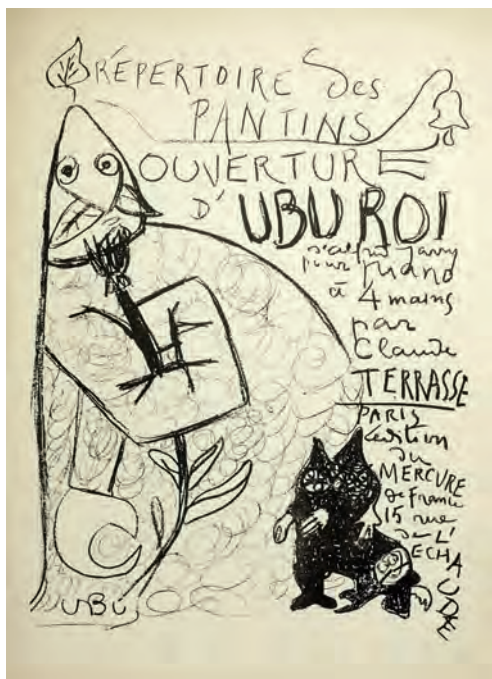 RÉPERTOIRE Des
PANTINS
OUVERTURE
D'
UBU ROI
d'alfred Jarry
pour piano
à 4 mains
par
Claude
TERRASSE
PARIS
édition
du
MERCURE
de France
15 rue
de L'
ECHAUDÉ
UBU